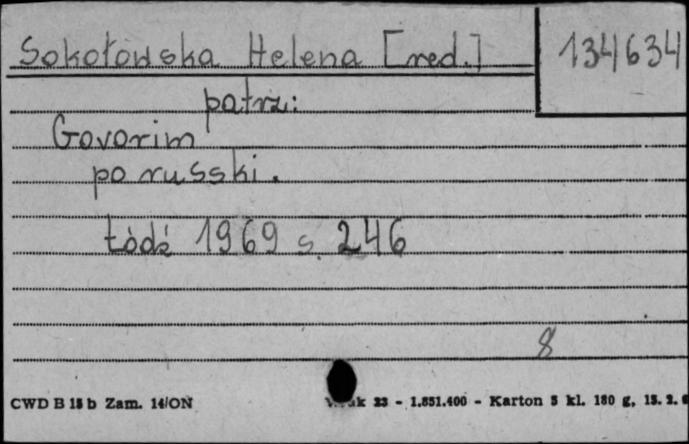 Sokołowska Helena [red.]
134634
patrz:
Govorim
po russki.
Łódź 1969 s. 246
8
CWD B 18 b Zam. 14/ON
23 - 1.851.400 - Karton 5 kl. 180 g,